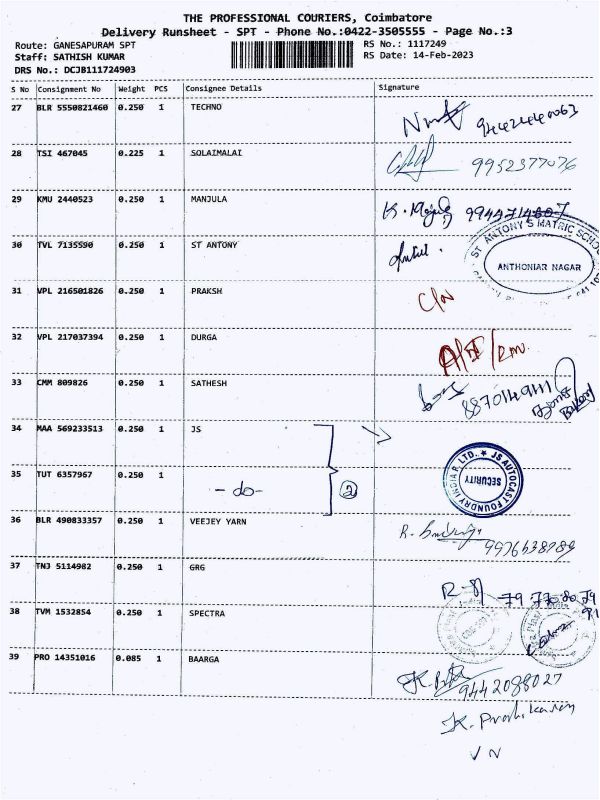 THE PROFESSIONAL COURIERS, Coimbatore
Delivery Runsheet - SPT - Phone No.:0422-3505555 - Page No.:3
Route: GANESAPURAM SPT RS No.: 1117249
Staff: SATHISH KUMAR RS Date: 14-Feb-2023
DRS No.: DCJB111724903
S No Consignment No Weight PCS Consignee Details Signature
27 BLR 5550821460 0.250 1 TECHNO
28 TSI 467045 0.225 1 SOLAIMALAI 9952377076
29 KMU 2440523 0.250 1 MANJULA
30 TVL 7135590 0.250 1 ST ANTONY
ST ANTONY'S MATRIC
ANTHONIAR NAGAR
31 VPL 216501826 0.250 1 PRAKSH
32 VPL 217037394 0.250 1 DURGA
33 CMM 809826 0.250 1 SATHESH
34 MAA 569233513 0.250 1 JS
35 TUT 6357967 0.250 1 -do- 2
JS AUTOCAST FOUNDRY INDIA P. LTD.
SECURITY
36 BLR 490833357 0.250 1 VEEJEY YARN
37 TNJ 5114982 0.250 1 GRG
38 TVM 1532854 0.250 1 SPECTRA
39 PRO 14351016 0.085 1 BAARGA
9442088027
V N